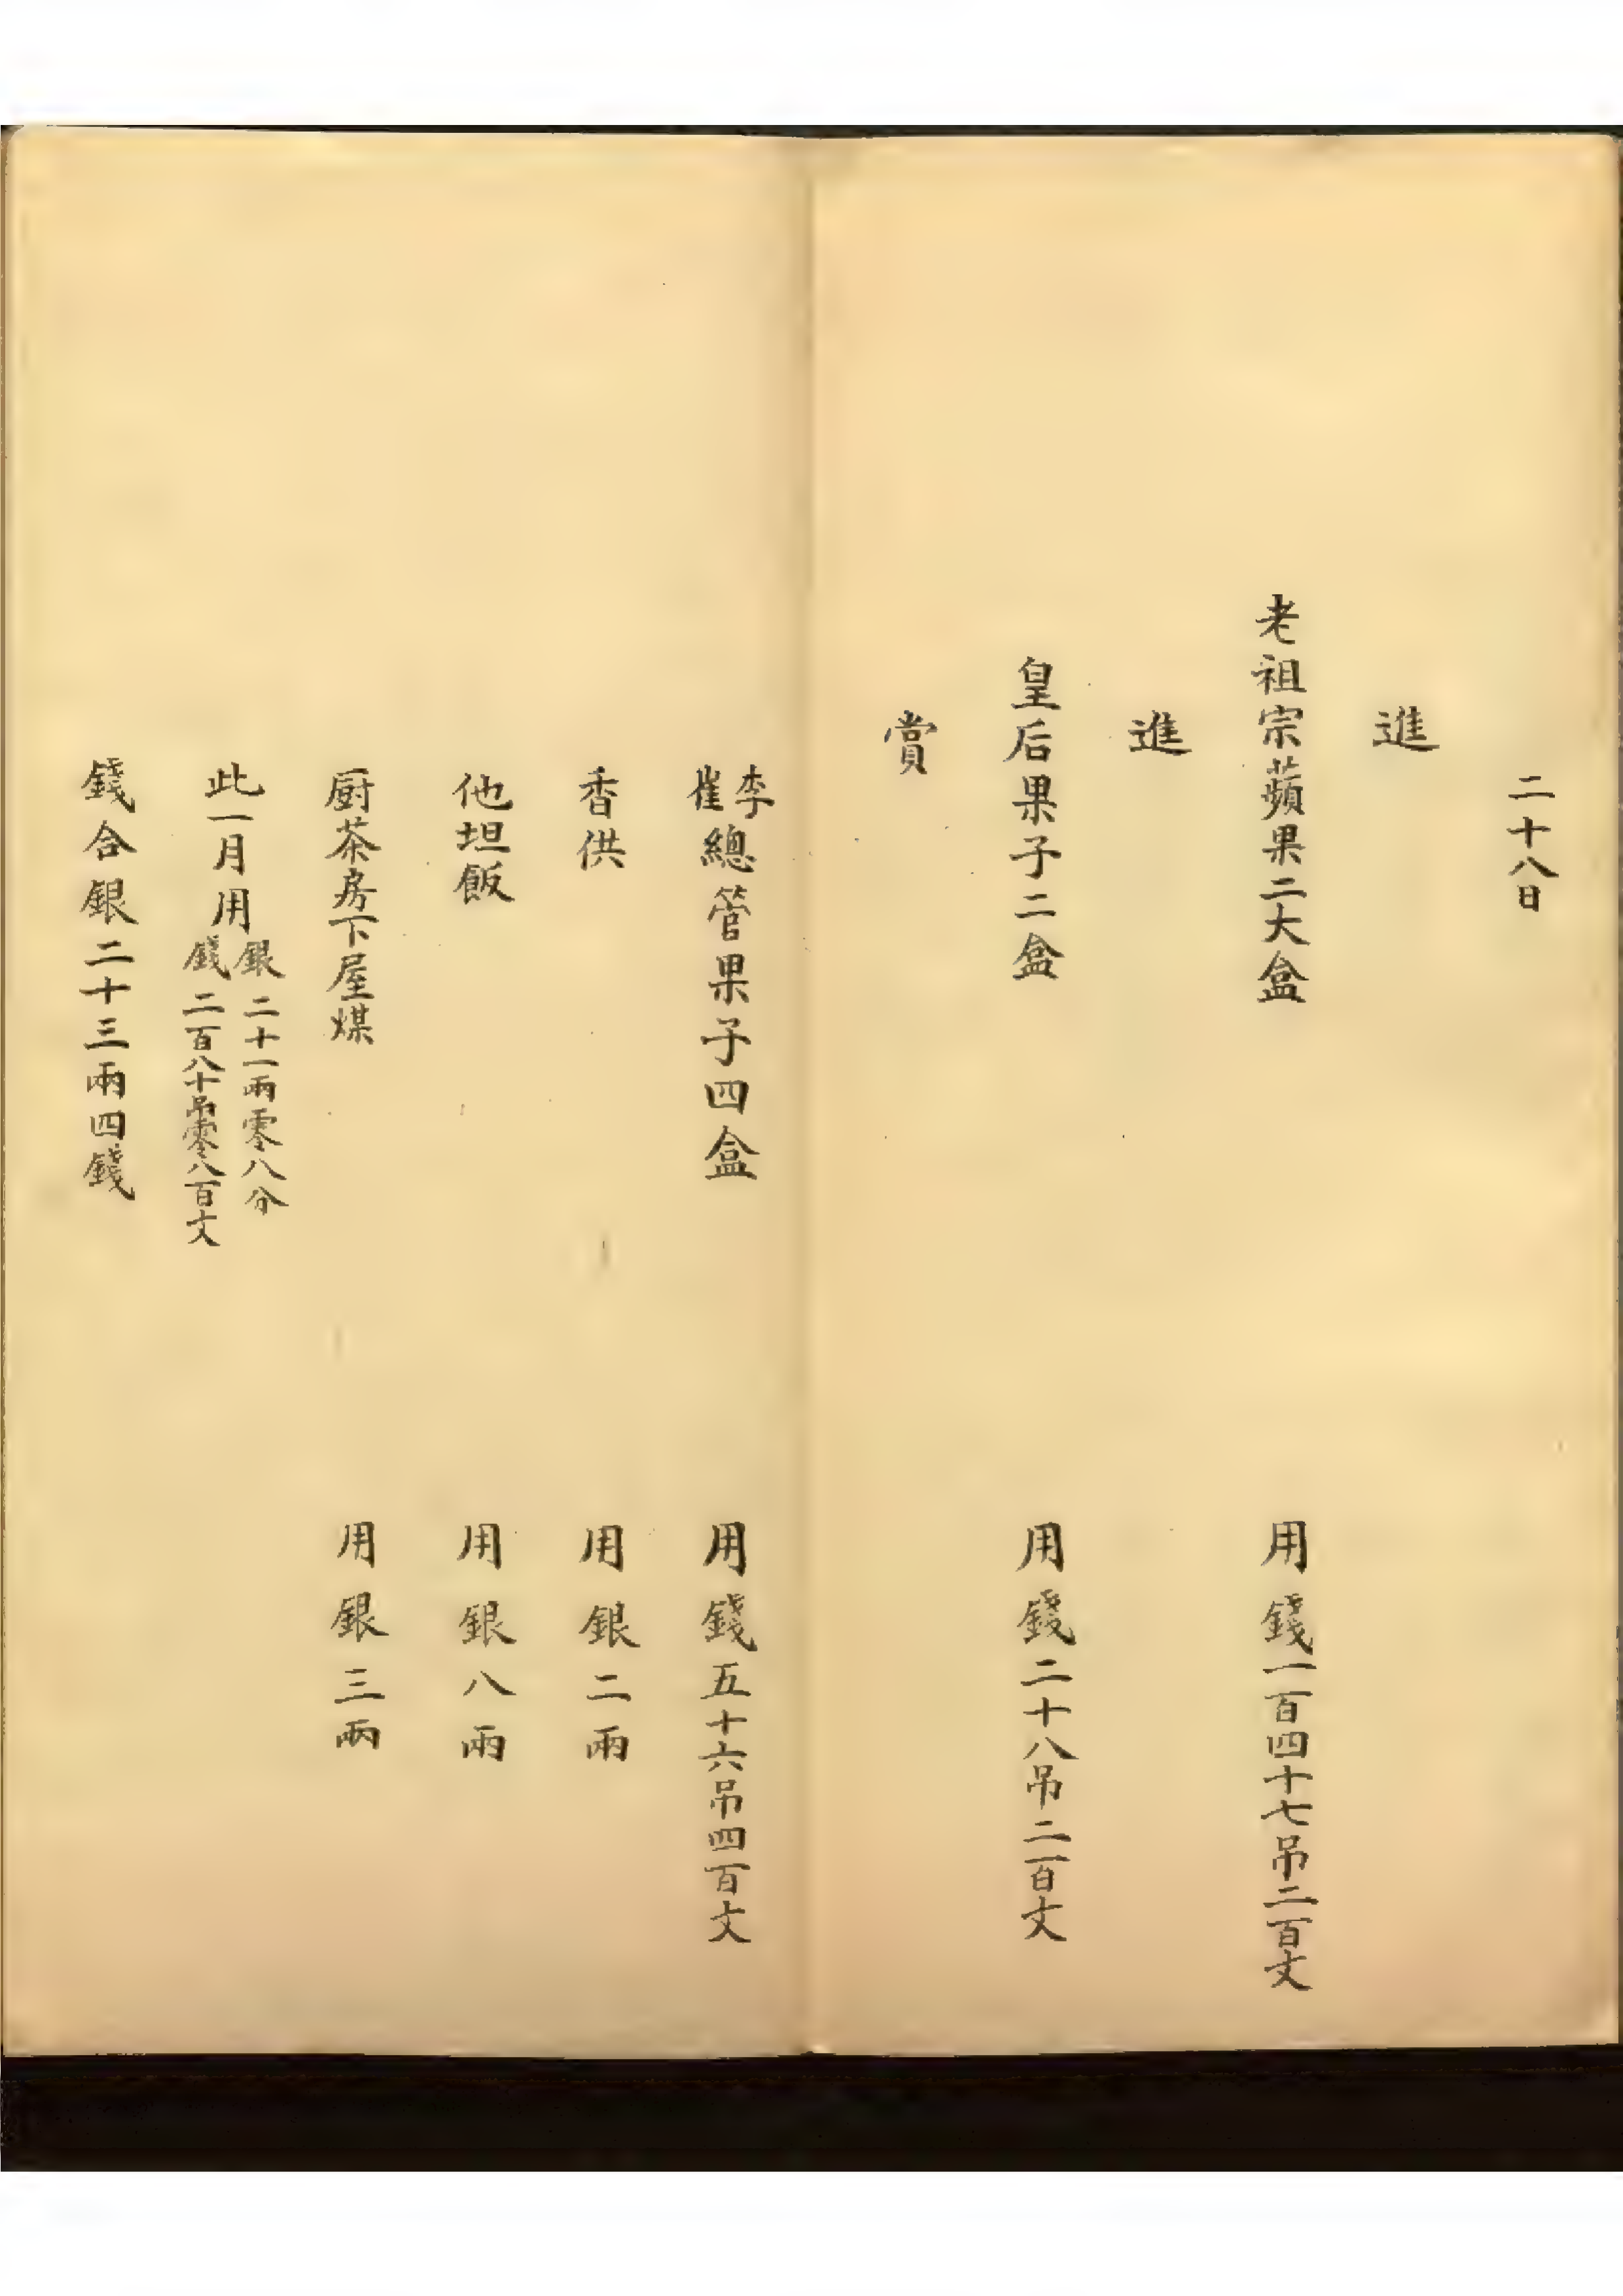 二十八日
進
老祖宗蘋果二大盒 用錢一百四十七吊二百文
進
皇后果子二盒 用錢二十八吊二百文
賞
李崔總管果子四盒 用錢五十六吊四百文
香供 用銀二兩
他坦飯 用銀八兩
厨茶房下屋煤 用銀三兩
此一月用銀二十一兩零八分
錢二百八十吊零八百文
錢合銀二十三兩四錢